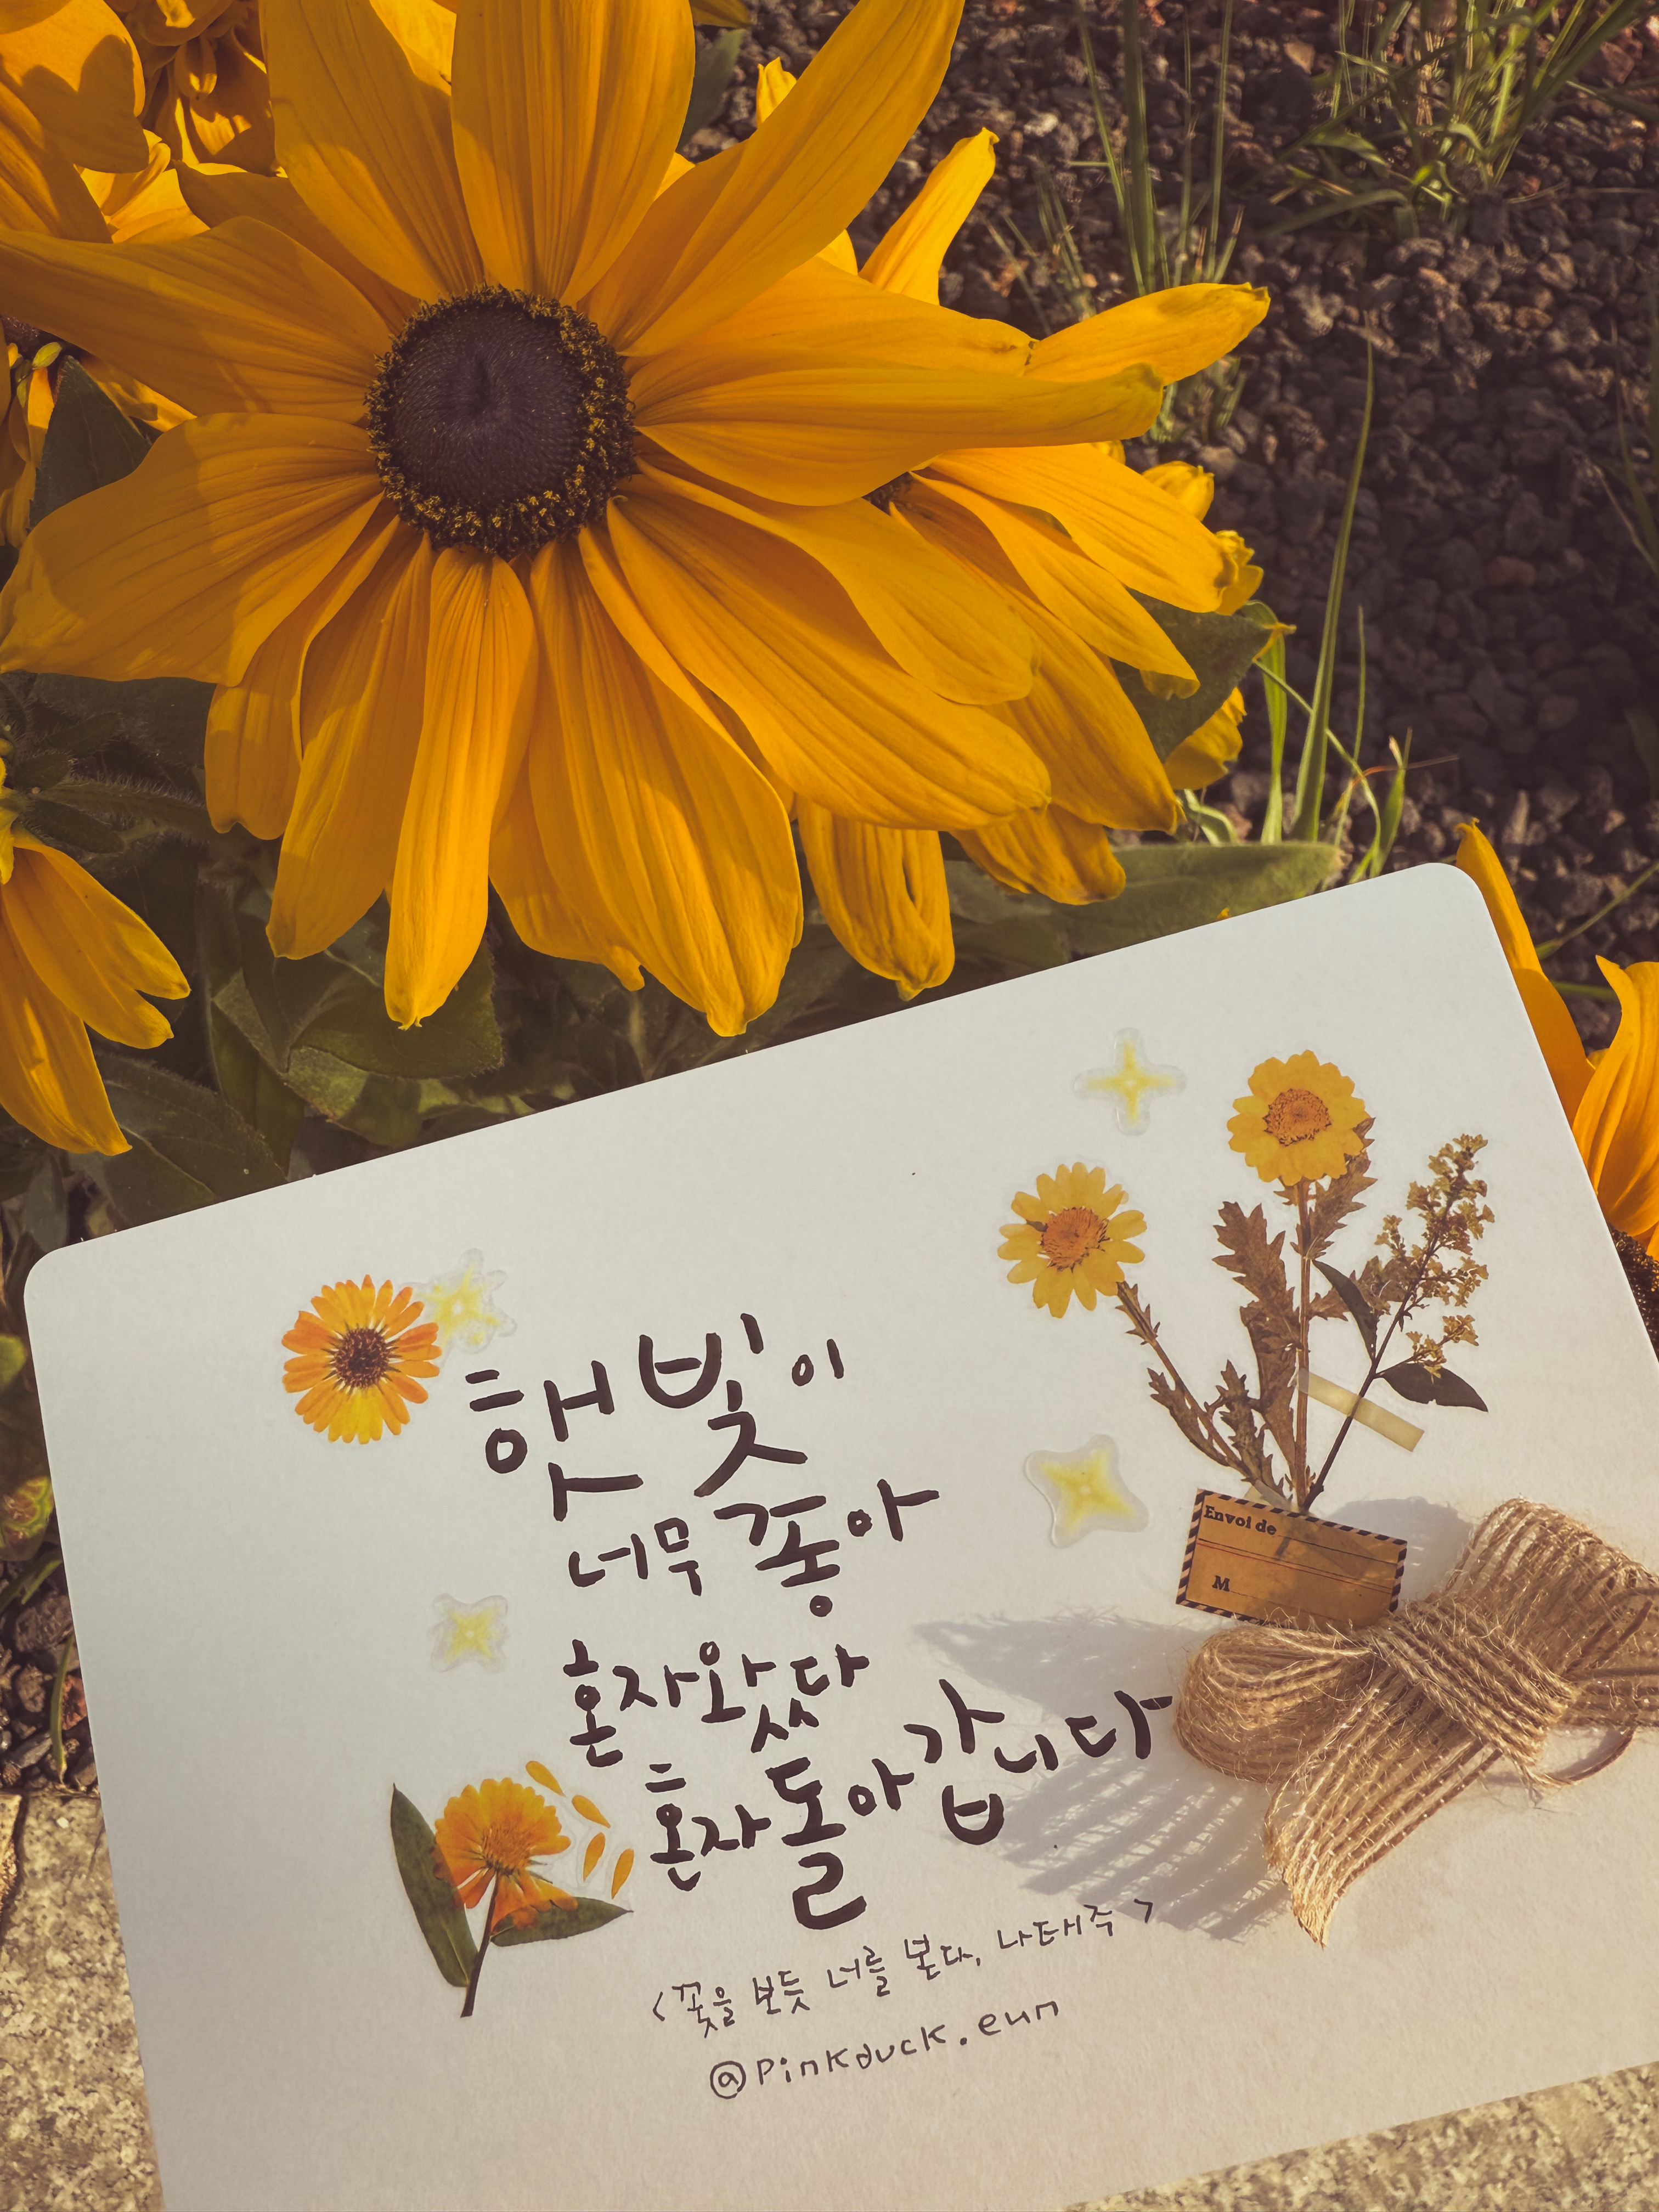 햇빛이
너무 좋아
혼자 왔다
혼자 돌아갑니다
<꽃을 보듯 너를 본다, 나태주>
@pinkduck.eun
Envoi de
M